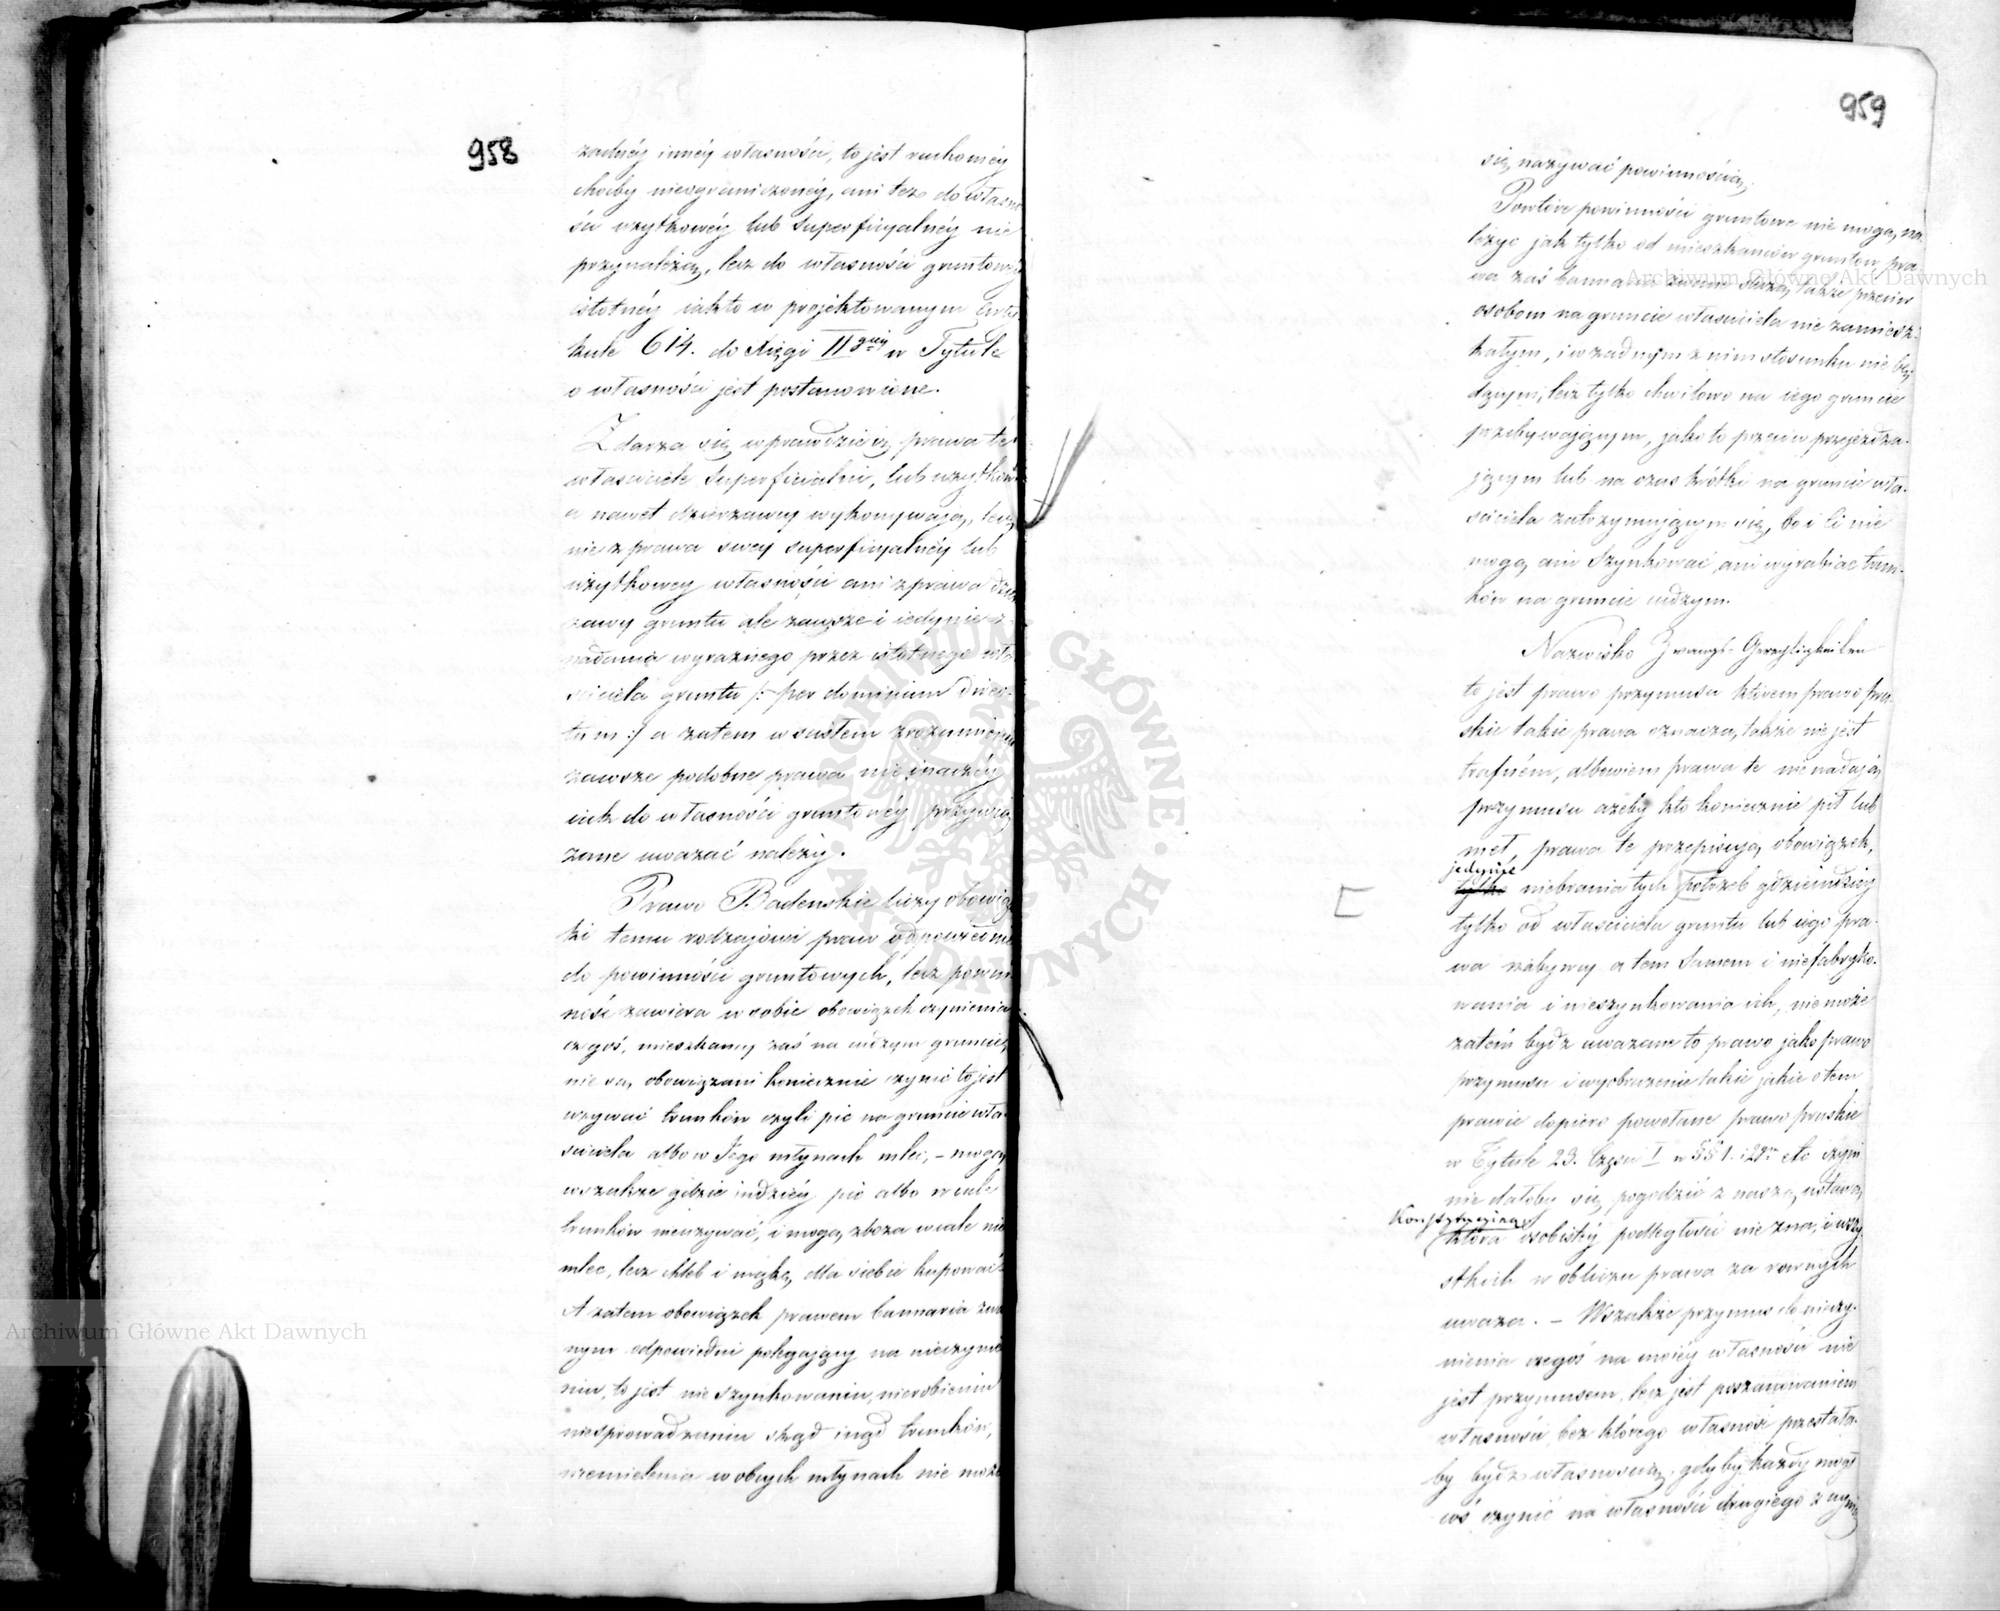 958
żadnéy innéy własności, to jest ruchoméy
choćby nieograniczonéy, ani też do własno
ści użytkowéy lub superficyalnéy nie
przynależą, lecz do własności gruntowéy
istotnéy iak to w projektowanym Arty
kule 614. do Xięgi II giéy w Tytule
o własności jest postanowione.
Zdarza się wprawdzie iż prawa te
właściciele superficialni, lub użytkow
a nawet dzierżawcy wykonywają, lecz
nie z prawa swey superficyalnéy lub
użytkowey własności ani z prawa dzier
żawy gruntu ale zawsze i iedynie z
nadania wyraźnego przez istotnego wła
ściciela gruntu /: per dominum direc-
tum :/ a zatem w ścisłem zrozumieniu
zawsze podobne prawa nie inaczéy
iak do własności gruntowéy przywią
zane uważać należy.
Prawo Badenskie liczy obowiąz
ki temu rodzajowi praw odpowiednie
do powinności gruntowych, lecz powin
ność zawiera w sobie obowiązek czynienia
czegoś, mieszkańcy zaś na cudzym gruncie,
nie są obowiązani koniecznie czynić to jest
używać trunków czyli pić na gruncie wła
ściciela albo w Jego młynach mleć, – mogą
wszakże gdzie indziéy pić albo wcale
trunków nieużywać, i mogą zboża wcale nie
mleć, lecz chleb i mąkę dla siebie kupować
A zatem obowiązek prawem bannaria zwa
nym odpowiedni polegający na nieczynie
niu, to jest nieszynkowaniu, nierobieniu
niesprowadzaniu skąd inąd trunków,
niemielenia w obcych młynach nie może
959
się nazywać powinnością.
Powtóre powinności gruntowe nie mogą na
leżyć jak tylko od mieszkańców gruntów pra
wa zaś bannaria zwane służą także przeciw
osobom na gruncie właściciela nie zamiesz-
kałym, i w żadnym z nim stosunku nie bę
dącym, lecz tylko chwilowo na iego gruncie
przebywającym, jako to przeciw przejeżdża-
jącym lub na czas krótki na gruncie wła-
ściciela zatrzymującym się, bo i ci nie
mogą ani szynkować, ani wyrabiać trun-
ków na gruncie cudzym.
Nazwisko Zwangs-Gerechtigkeiten
to jest prawo przymusu którem prawo pru-
skie takie prawa oznacza, także nie jest
trafném, albowiem prawa te nie nadają
przymusu ażeby kto koniecznie pił lub
mełł, prawa te przepisują obowiązek,
jedynie
tylko niebrania tych potrzeb gdzieindziéy
tylko od właściciela gruntu lub iego pra-
wa nabywcy a tem samem i niefabryko-
wania i nieszynkowania ich, nie może
zatém bydź uważane to prawo jako prawo
przymusu i wyobrażenie takie jakie o tem
prawie dopiero powołane prawo pruskie
w Tytule 23. Części I w §§ 1. i 2gim etc czyni
nie dałoby się pogodzić z naszą ustawą
Konstytucyiną
która osobistéy podległości nie zna, i wszy
stkich w obliczu prawa za równych
uważa. – Wszakże przymus do nieczy-
nienia czegoś na moiéy własności nie
jest przymusem, lecz jest poszanowaniem
własności bez którego własność przestała-
by bydź własnością, gdyby każdy mógł
coś czynić na własności drugiego z
Archiwum Główne Akt Dawnych
Archiwum Główne Akt Dawnych
ARCHIWUM GŁÓWNE AKT DAWNYCH